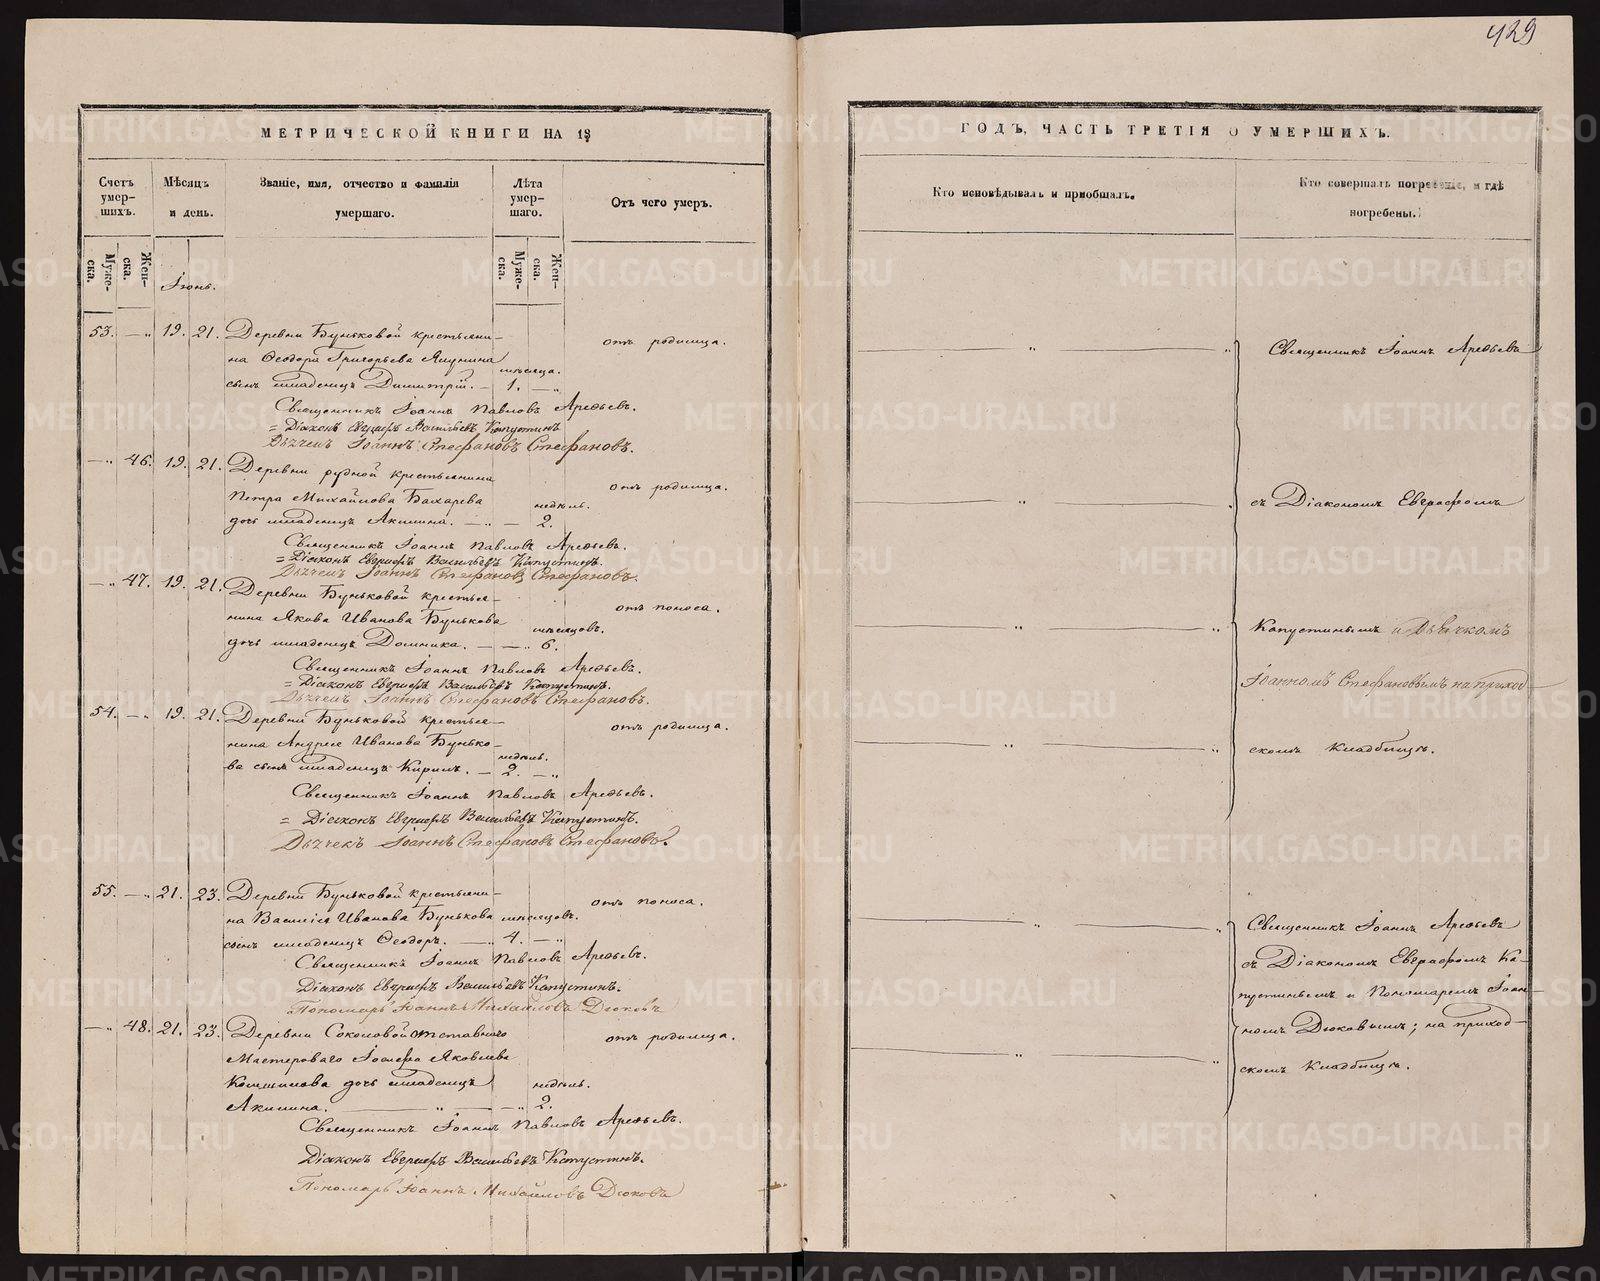 429
МЕТРИЧЕСКОЙ КНИГИ НА 18
Счетъ умер-шихъ.
Мѣсяцъ и день.
Званіе, имя, отчество и фамилія умершаго.
Лѣта умер-шаго.
Отъ чего умеръ.
Муже-ска.
Жен-ска.
Муже-ска.
Жен-ска.
Іюнь.
53. — „ 19. 21. Деревни Буньковой крестьяни-
на Ѳеодора Григорьева Ячунина
сынъ младенецъ Димитрій. — мѣсяца. 1. — „
отъ родимца.
Священникъ Іоаннъ Павловъ Арефьевъ.
= Діаконъ Евграфъ Васильевъ Капустинъ
Дьячекъ Іоаннъ Стефановъ Стефановъ.
— „ 46. 19. 21. Деревни рудной крестьянина
Петра Михайлова Бахарева
дочь младенецъ Акилина. — „ — недѣль. 2.
отъ родимца.
Священникъ Іоаннъ Павловъ Арефьевъ.
= Діаконъ Евграфъ Васильевъ Капустинъ.
Дьячекъ Іоаннъ Стефановъ Стефановъ.
— „ 47. 19. 21. Деревни Буньковой крестья-
нина Якова Иванова Бунькова
дочь младенецъ Домника. — — „ мѣсяцовъ. 6.
отъ поноса.
Священникъ Іоаннъ Павловъ Арефьевъ.
= Діаконъ Евграфъ Васильевъ Капустинъ.
Дьячекъ Іоаннъ Стефановъ Стефановъ.
54. — „ 19. 21. Деревни Буньковой крестья-
нина Андрея Иванова Бунько-
ва сынъ младенецъ Кирилъ. — недѣль. 2. — „
отъ родимца.
Священникъ Іоаннъ Павловъ Арефьевъ.
= Діаконъ Евграфъ Васильевъ Капустинъ.
Дьячекъ Іоаннъ Стефановъ Стефановъ.
55. — „ 21. 23. Деревни Буньковой крестьяни-
на Василія Иванова Бунькова
сынъ младенецъ Ѳеодоръ. — мѣсяцовъ. 4. — „
отъ поноса.
Священникъ Іоаннъ Павловъ Арефьевъ.
Діаконъ Евграфъ Васильевъ Капустинъ.
Пономарь Іоаннъ Михайловъ Дюковъ
— „ 48. 21. 23. Деревни Соколовой отставнаго
Мастероваго Іосифа Яковлева
дочь младенецъ
Акилина. — „ — „ недѣль. 2.
отъ родимца.
Священникъ Іоаннъ Павловъ Арефьевъ.
Діаконъ Евграфъ Васильевъ Капустинъ.
Пономарь Іоаннъ Михайловъ Дюковъ
ГОДЪ, ЧАСТЬ ТРЕТІЯ О УМЕРШИХЪ.
Кто исповѣдывалъ и пріобщалъ.
Кто совершалъ погребеніе, и гдѣ погребены.
Священникъ Іоаннъ Арефьевъ
съ Діакономъ Евграфомъ
Капустинымъ и Дьячкомъ
Іоанномъ Стефановымъ на приход-
скомъ Кладбищѣ.
Священникъ Іоаннъ Арефьевъ
съ Діакономъ Евграфомъ Ка-
пустинымъ и Пономаремъ Іоан-
номъ Дюковымъ; на приход-
скомъ Кладбищѣ.
METRIKI.GASO-URAL.RU